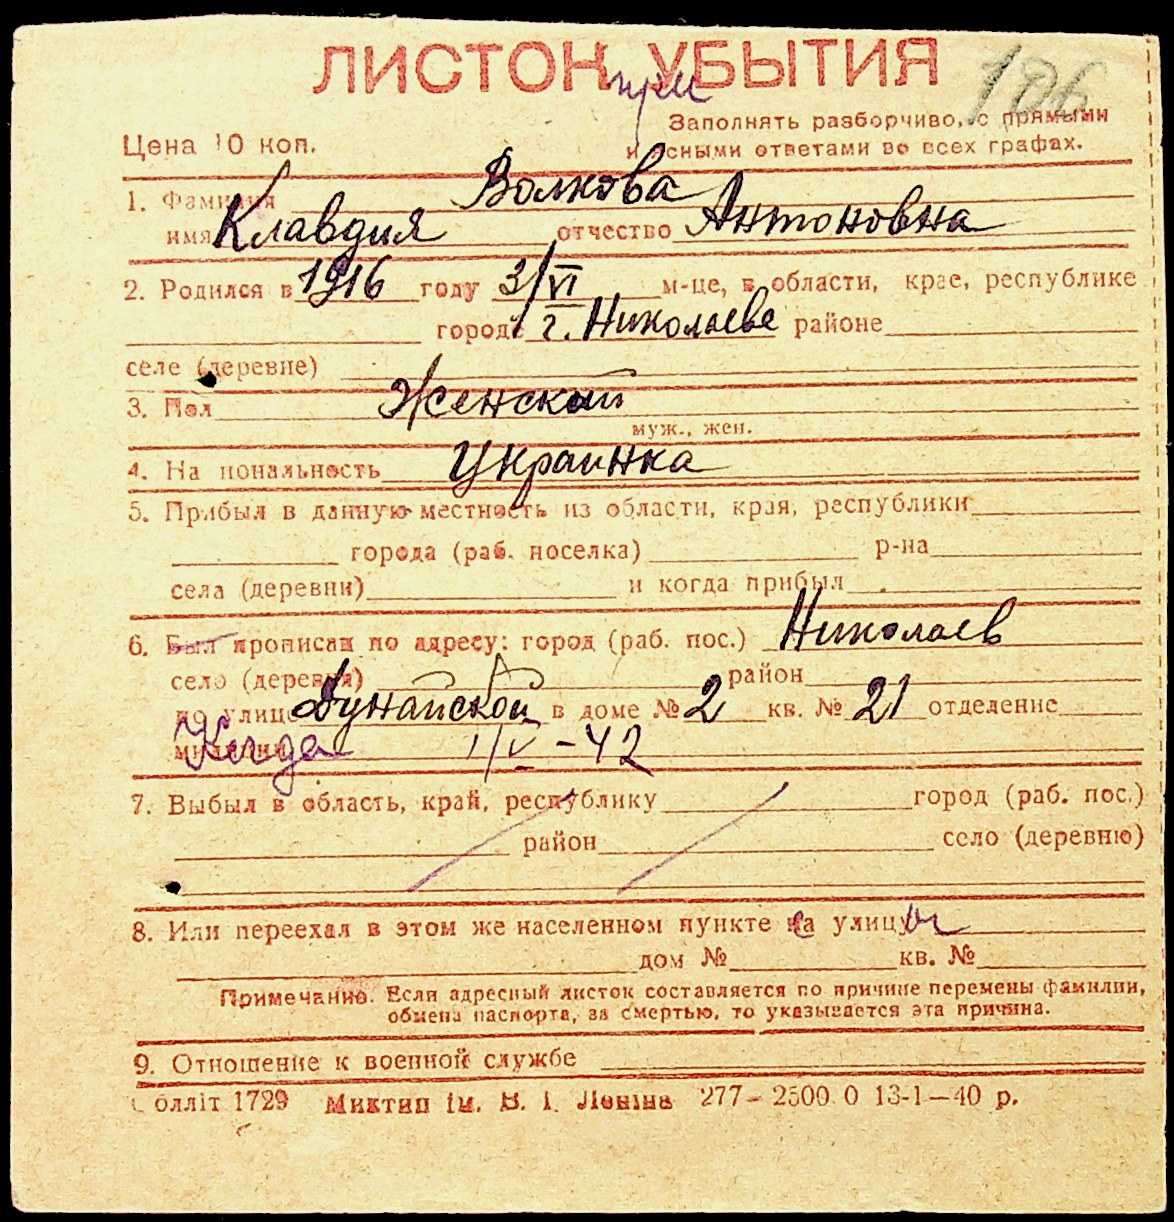 ЛИСТОК УБЫТИЯ
при
106
Цена 10 коп.
Заполнять разборчиво, с прямыми
и ясными ответами во всех графах.
1. Фамилия Волкова
имя Клавдия отчество Антоновна
2. Родился в 1916 году 3/VI м-це, в области, крае, республике
городе г. Николаеве районе
селе (деревне)
3. Пол Женский
муж., жен.
4. Национальность Украинка
5. Прибыл в данную местность из области, края, республики
города (раб. поселка) р-на
села (деревни) и когда прибыл
6. Был прописан по адресу: город (раб. пос.) Николаев
село (деревня) район
по улице Дунайской в доме № 2 кв. № 21 отделение
милиции Когда 1/V-42
7. Выбыл в область, край, республику город (раб. пос.)
район село (деревню)
8. Или переехал в этом же населенном пункте на с улицу ы
дом № кв. №
Примечание. Если адресный листок составляется по причине перемены фамилии,
обмена паспорта, за смертью, то указывается эта причина.
9. Отношение к военной службе
облліт 1729 Миктип ім. В. І. Леніна 277—2500 0 13-1—40 р.